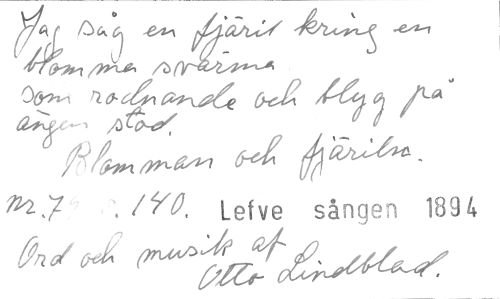 Jag såg en fjäril kring en
blomma svärma
som rodnande och blyg på
ängen stod.
Blomman och fjäriln.
nr. 79 s. 140. Lefve sången 1894
Ord och musik af
Otto Lindblad.